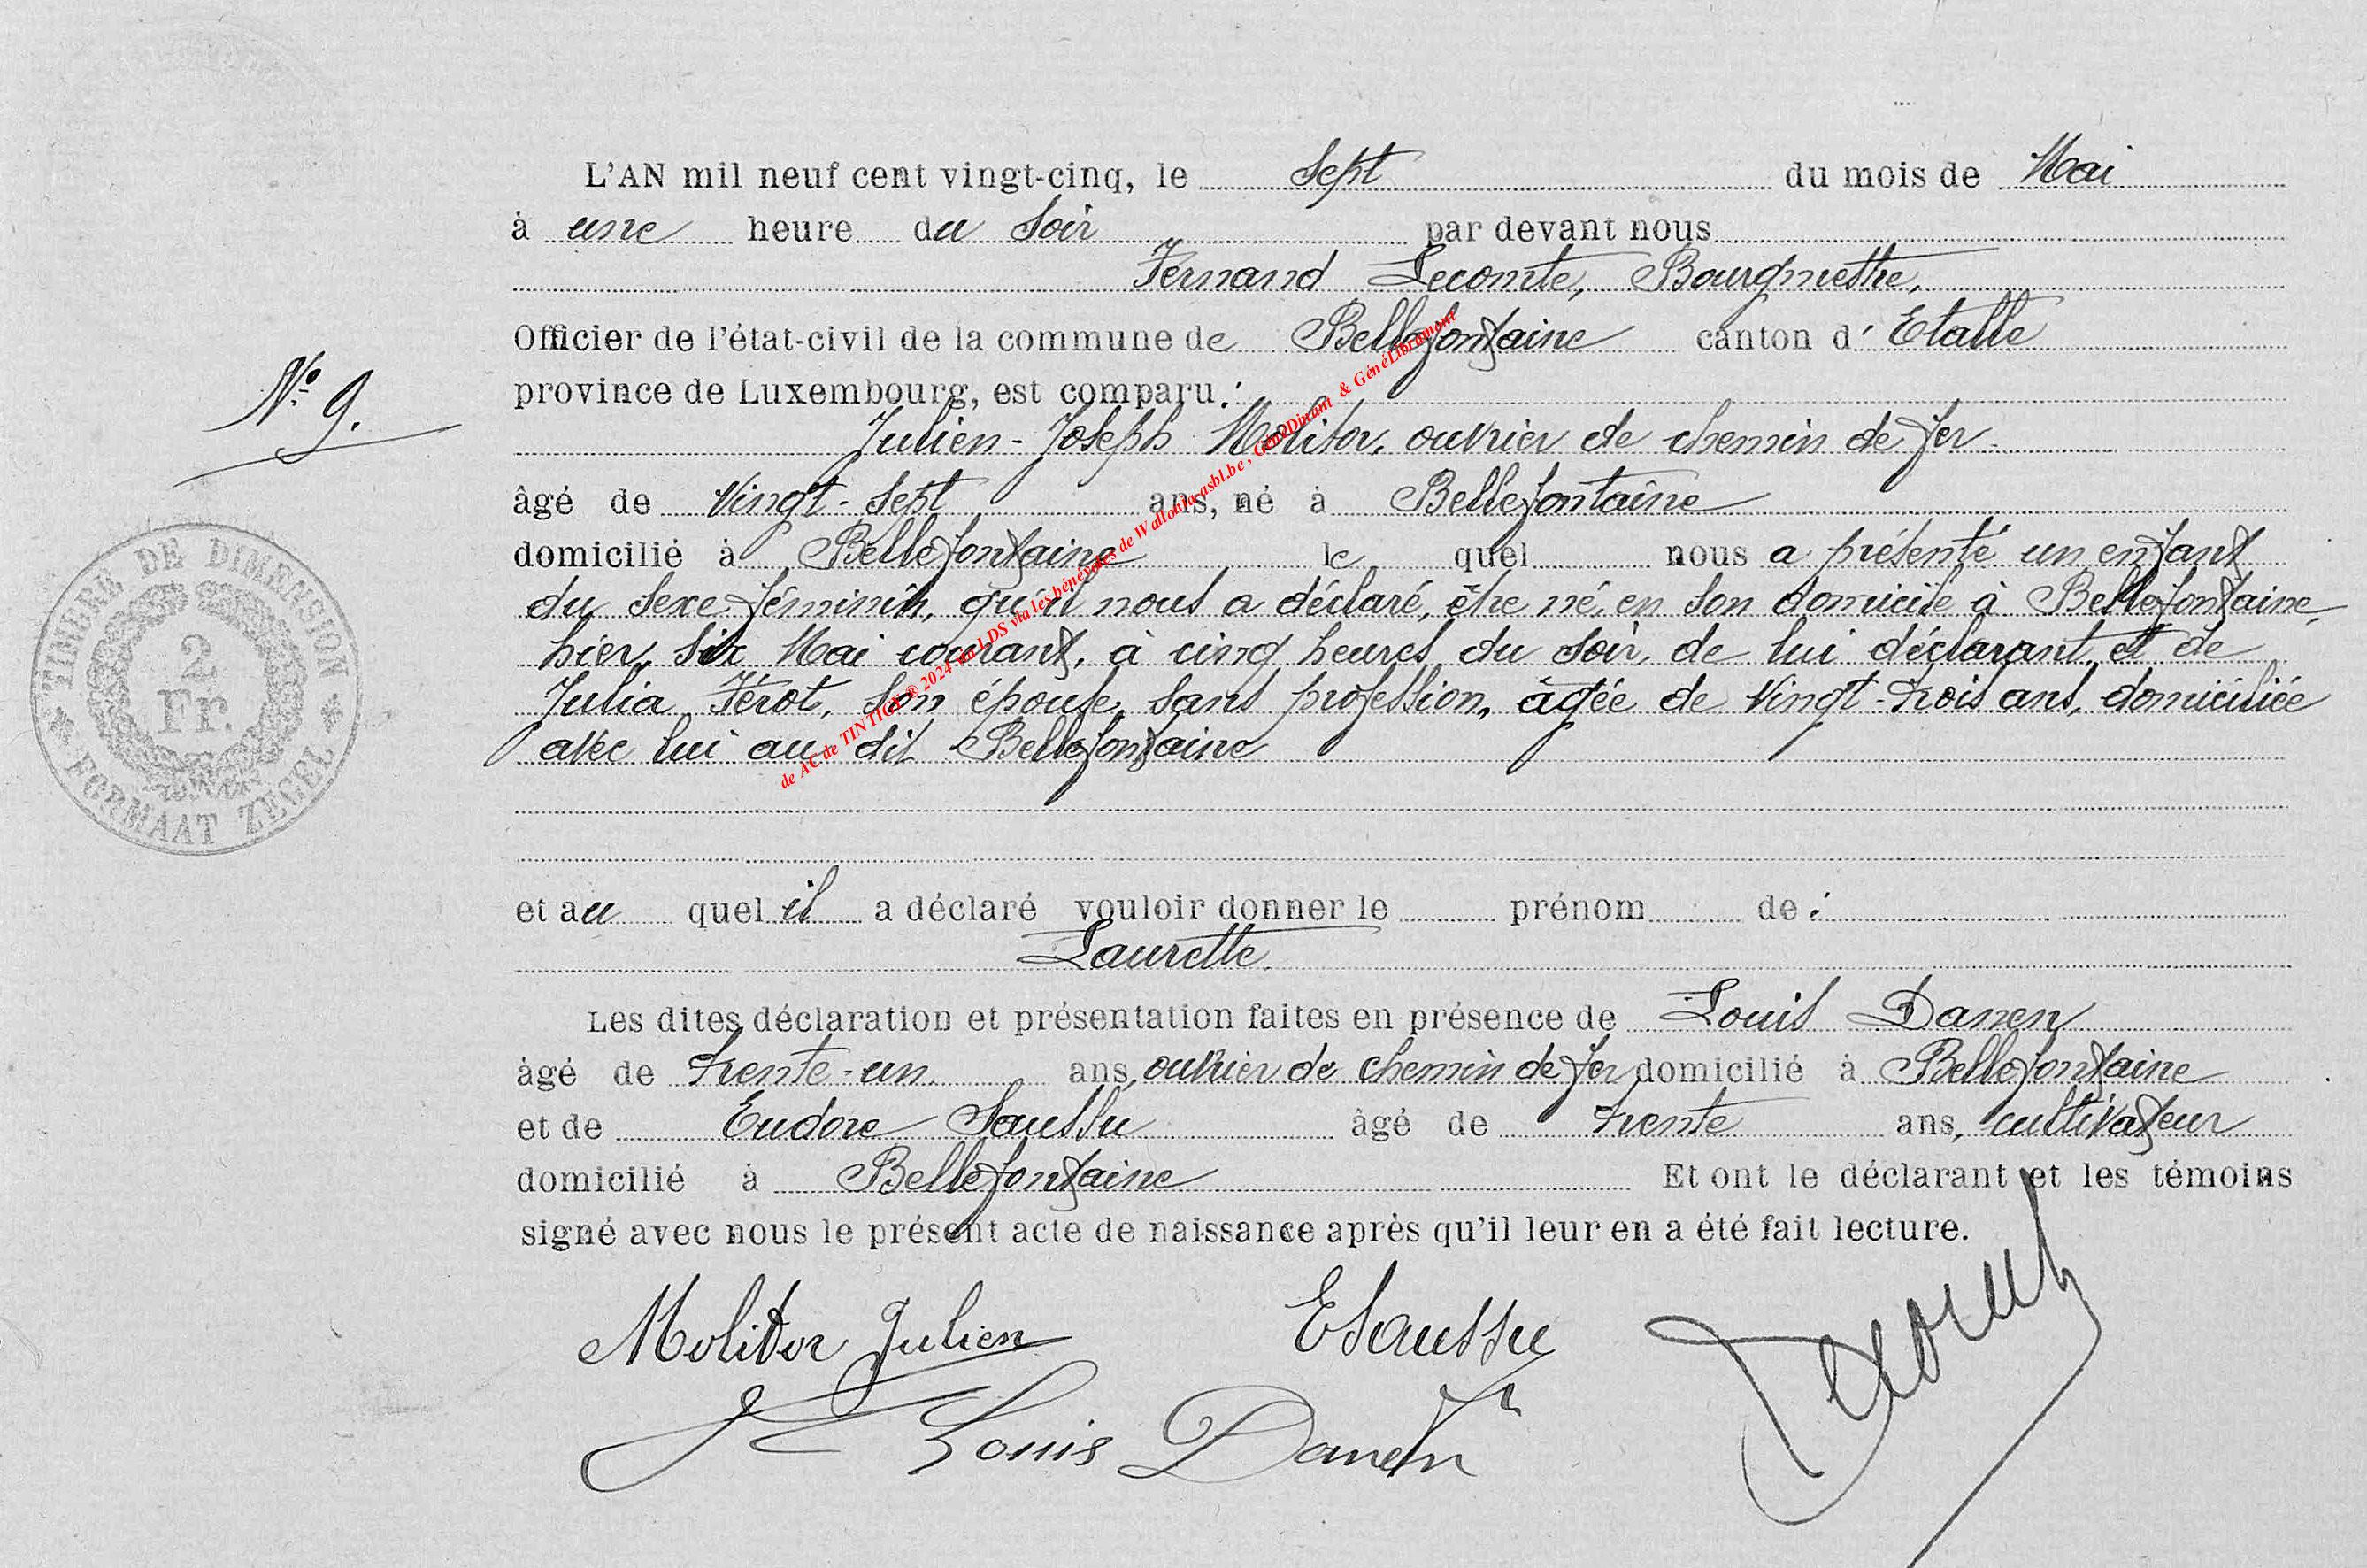 L'AN mil neuf cent vingt-cinq, le Sept du mois de Mai
à une heure du Soir par devant nous
Fernand Lecomte, Bourgmestre,
Officier de l'état-civil de la commune de Bellefontaine canton d' Etalle
N° 9.
province de Luxembourg, est comparu :
Julien-Joseph Molitor, ouvrier de chemin de fer
âgé de vingt-sept ans, né à Bellefontaine
domicilié à Bellefontaine le quel nous a présenté un enfant
du sexe féminin, qu'il nous a déclaré, être né, en son domicile à Bellefontaine,
hier, six Mai courant, à cinq heures du soir, de lui déclarant, et de
Julia Férot, son épouse, sans profession, âgée de vingt-trois ans, domiciliée
avec lui au dit Bellefontaine
TIMBRE DE DIMENSION
2
Fr.
FORMAAT ZEGEL
et au quel il a déclaré vouloir donner le prénom de :
Laurette.
Les dites déclaration et présentation faites en présence de Louis Danen
âgé de trente-un ans, ouvrier de chemin de fer domicilié à Bellefontaine
et de Eudore Saussu âgé de trente ans, cultivateur
domicilié à Bellefontaine Et ont le déclarant et les témoins
signé avec nous le présent acte de naissance après qu'il leur en a été fait lecture.
Molitor Julien ESaussu
Louis Danen
de AC de TINTIGN © 2024 au LDS via les bénévoles de Wallonia-asbl.be, GénéDinant & GénéLibramont